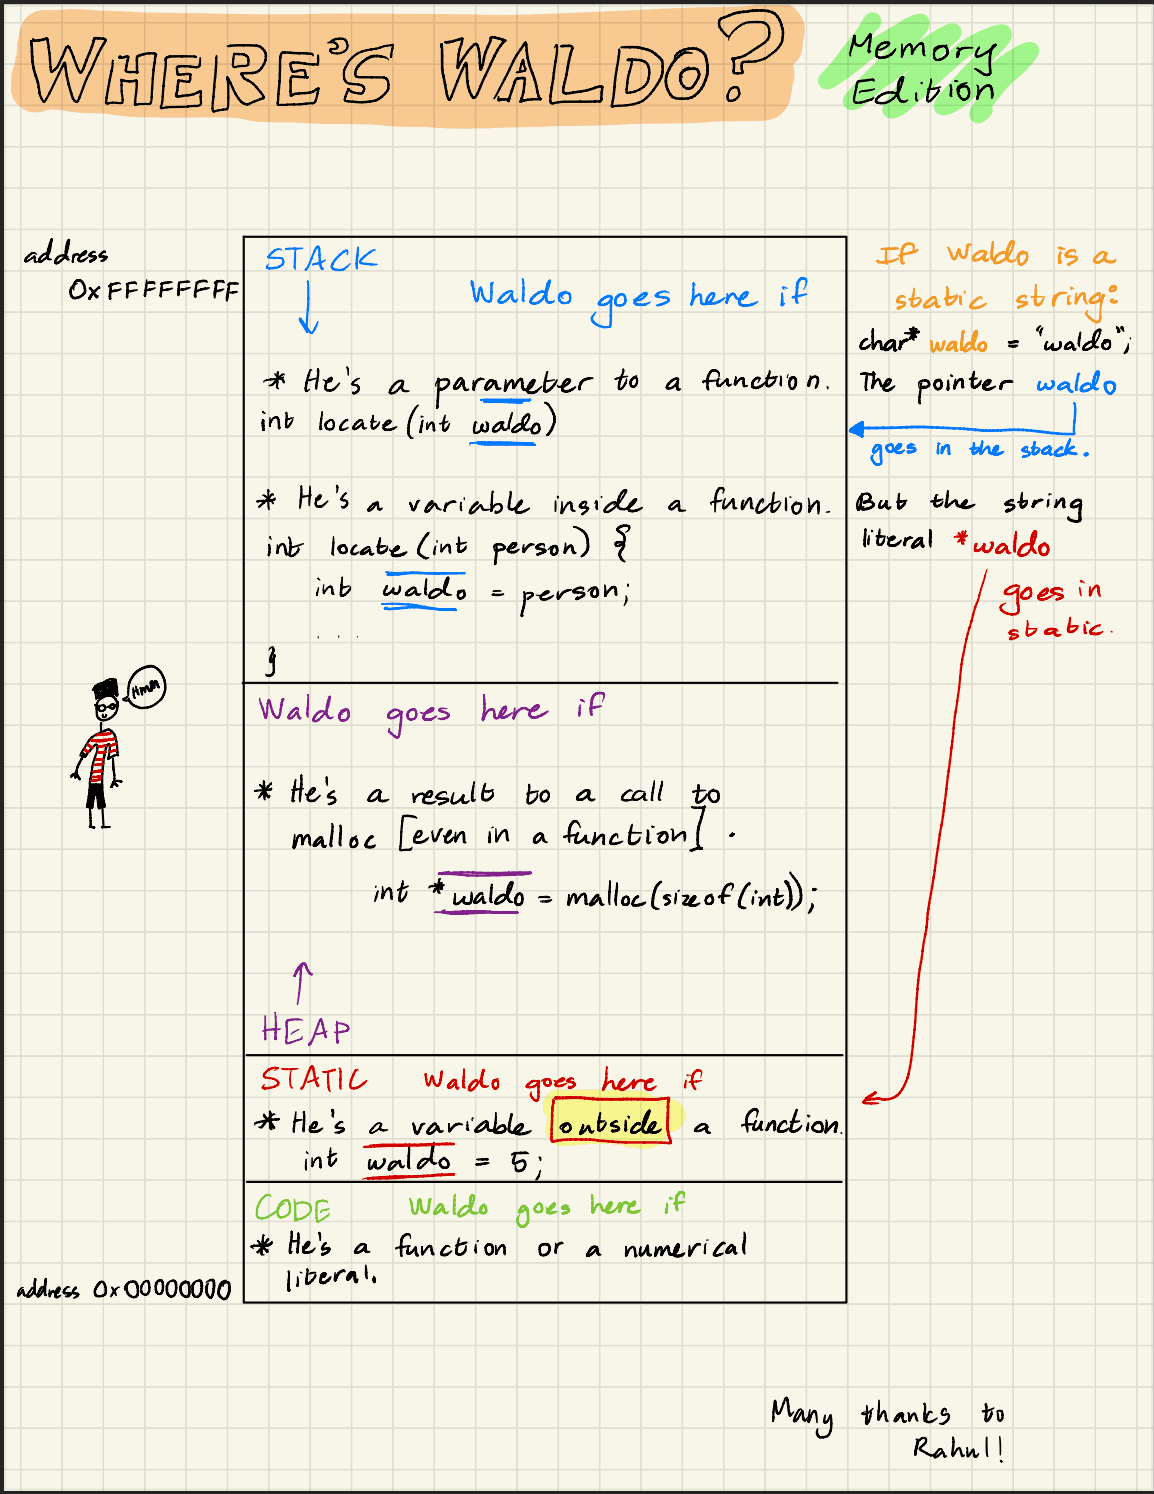 WHERE'S WALDO?
Memory
Edition
address
0xFFFFFFFF
STACK
Waldo goes here if
* He's a parameter to a function.
int locate(int waldo)
* He's a variable inside a function.
int locate (int person) {
int waldo = person;
....
}
If Waldo is a
static string:
char* waldo = "waldo";
The pointer waldo
goes in the stack.
But the string
literal *waldo
goes in
static.
Hmm
Waldo goes here if
* He's a result to a call to
malloc [even in a function].
int *waldo = malloc(sizeof(int));
HEAP
STATIC Waldo goes here if
* He's a variable outside a function.
int waldo = 5;
CODE Waldo goes here if
* He's a function or a numerical
literal.
address 0x00000000
Many thanks to
Rahul!